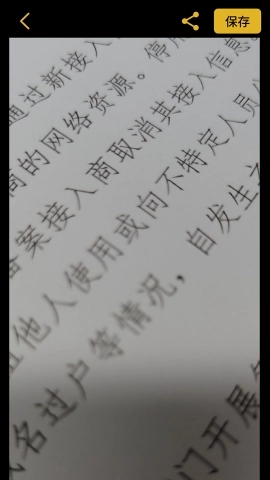 保存
通过新接入
商的网络资源。停用
备案接入商取消其接入信息
他人使用或向不特定人员
名过户等情况，自发生之
门开展